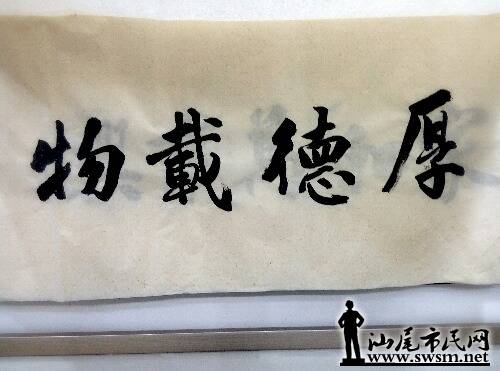 厚德載物
汕尾市民网
www.swsm.net